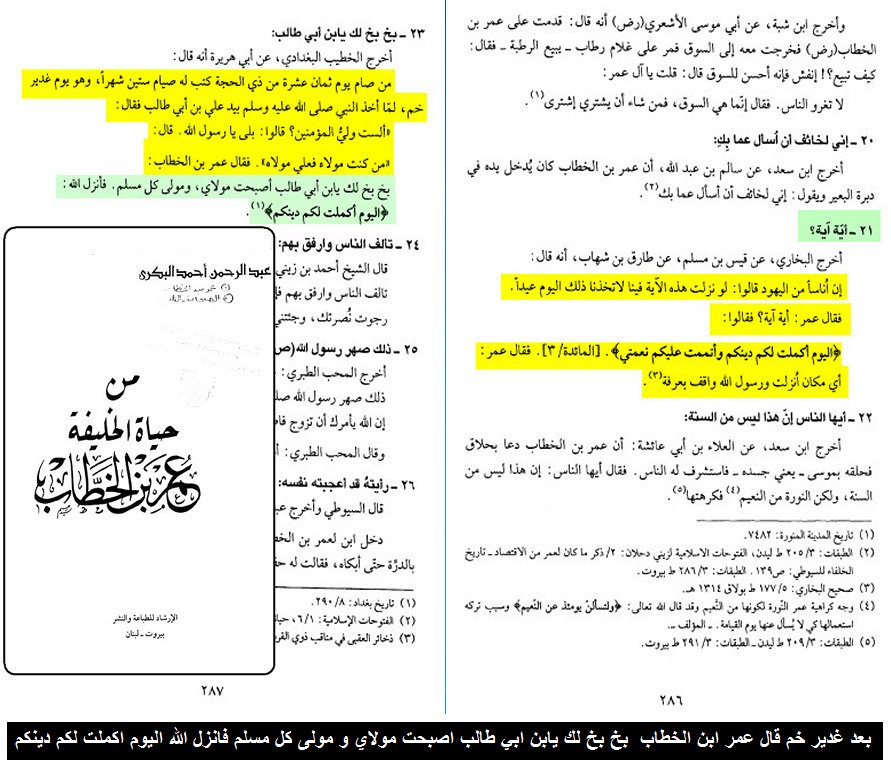 وأخرج ابن شبة، عن أبي موسى الأشعري(رض) أنه قال: قدمت على عمر بن
الخطاب(رض) فخرجت معه إلى السوق فمر على غلام رطاب ــ يبيع الرطبة ــ فقال:
كيف تبيع؟! إنفش فإنه أحسن للسوق قال: قلت يا آل عمر:
لا تغرو الناس. فقال إنّما هي السوق، فمن شاء أن يشتري إشترى(١).
٢٠ ــ إني لخائف أن أسأل عما بكِ:
أخرج ابن سعد، عن سالم بن عبد الله، أن عمر بن الخطاب كان يُدخل يده في
دبرة البعير ويقول: إني لخائف أن أسأل عما بك(٢).
٢١ ــ أيّة آية؟
أخرج البخاري، عن قيس بن مسلم، عن طارق بن شهاب، أنه قال:
إن أناساً من اليهود قالوا: لو نزلت هذه الآية فينا لاتخذنا ذلك اليوم عيداً.
فقال عمر: أية آية؟ فقالوا:
﴿اليوم أكملت لكم دينكم وأتممت عليكم نعمتي﴾. [المائدة/ ٣]. فقال عمر:
أي مكان أنزلت ورسول الله واقف بعرفة(٣).
٢٢ ــ أيها الناس إنّ هذا ليس من السنة:
أخرج ابن سعد، عن العلاء بن أبي عائشة: أن عمر بن الخطاب دعا بحلاق
فحلقه بموسى ــ يعني جسده ــ فاستشرف له الناس. فقال أيها الناس: إن هذا ليس من
السنة، ولكن النورة من النعيم(٤) فكرهتها(٥).
(١) تاريخ المدينة المنورة: ٧٤٨٢.
(٢) الطبقات: ٣/ ٢٠٥ ط ليدن، الفتوحات الاسلامية لزيني دحلان: ٢/ ذكر ما كان لعمر من الاقتصاد ــ تاريخ
الخلفاء للسيوطي: ص١٣٩. الطبقات: ٣/ ٢٨٦ ط بيروت.
(٣) صحيح البخاري: ٥/ ١٧٧ ط بولاق ١٣١٤ هـ.
(٤) وجه كراهية عمر النّورة لكونها من النّعيم وقد قال الله تعالى: ﴿ولتسألنّ يومئذ عن النّعيم﴾ وسبب تركه
استعمالها كي لا يُسأل عنها يوم القيامة. ــ المؤلف ــ.
(٥) الطبقات: ٣/ ٢٠٩ ط ليدن ــ الطبقات: ٣/ ٢٩١ ط بيروت.
٢٨٦
٢٣ ــ بخ بخ لك يابن أبي طالب:
أخرج الخطيب البغدادي، عن أبي هريرة أنه قال:
من صام يوم ثمان عشرة من ذي الحجة كتب له صيام ستين شهراً، وهو يوم غدير
خم، لمّا أخذ النبي صلى الله عليه وسلم بيد علي بن أبي طالب فقال:
«ألست وليُّ المؤمنين؟ قالوا: بلى يا رسول الله. قال:
«من كنت مولاه فعلي مولاه». فقال عمر بن الخطاب:
بخ بخ لك يابن أبي طالب أصبحت مولاي، ومولى كل مسلم. فأنزل الله:
﴿اليوم أكملت لكم دينكم﴾(١).
٢٤ ــ تالف الناس وارفق بهم:
قال الشيخ أحمد بن زيني
تالف الناس وارفق بهم
رجوت نُصرتك، وجئتني
٢٥ ــ ذلك صهر رسول الله(ص
أخرج المحب الطبري:
ذلك صهر رسول الله
إن الله يأمرك أن تزوج
وقال المحب الطبري:
٢٦ ــ رأيتهُ قد أعجبته نفسه:
قال السيوطي وأخرج
دخل ابن لعمر بن
بالدرَّة حتّى أبكاه، فقالت له
(١) تاريخ بغداد: ٨/ ٢٩٠.
(٢) الفتوحات الإسلامية: ٦/١،
(٣) ذخائر العقبى في مناقب ذوي
٢٨٧
عبد الرحمن أحمد البكري
من
حياة الخليفة
عمر بن الخطاب
الإرشاد للطباعة والنشر
بيروت ــ لبنان
بعد غدير خم قال عمر ابن الخطاب بخ بخ لك يابن ابي طالب اصبحت مولاي و مولى كل مسلم فانزل الله اليوم اكملت لكم دينكم